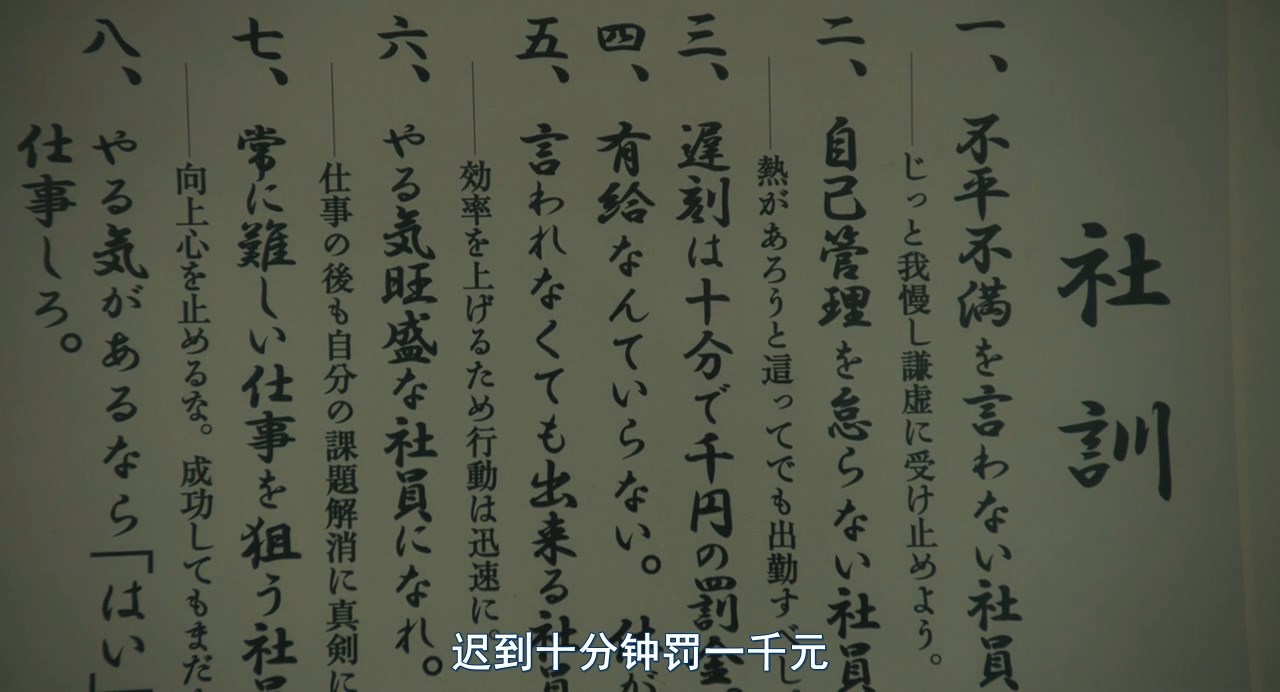 社訓
一、不平不満を言わない社員
―じっと我慢し謙虚に受け止めよう。
二、自己管理を怠らない社員
―熱があろうと這ってでも出勤すべし
三、遅刻は十分で千円の罰金。
四、有給なんていらない。
五、言われなくても出来る社員
―効率を上げるため行動は迅速に。
六、やる気旺盛な社員になれ。
―仕事の後も自分の課題解消に真剣に
七、常に難しい仕事を狙う社
―向上心を止めるな。成功してもまだ
八、やる気があるなら「はい」
仕事しろ。
迟到十分钟罚一千元